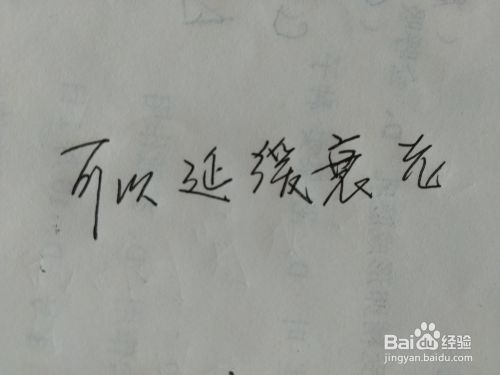 可以延緩衰老
Bai du 经验
jingyan.baidu.com